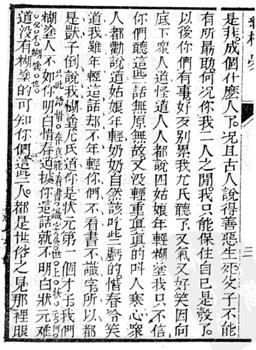 是我成個什麼人了況且古人說得善惡生死父子不能
有所勗助何況你我二人之間我只能保住自己是彀了
以後你們有事好歹別累我尤氏聽了又氣又好笑因向
底下衆人道怪道人人都說四姑娘年輕糊塗我只不信
你們聽這些話無原無故又沒輕重真真的叫人寒心衆
人都勸說道姑娘年輕奶奶自然該吃些虧的惜春冷笑
道我雖年輕這話却不年輕你們不看書不識字所以都
是獃子倒說我糊塗尤氏道你是狀元第一個才子我們
糊塗人不如你明白惜春道據你這話就不明白狀元難
道沒有糊塗的可知你們這些人都是世俗之見那裡眼